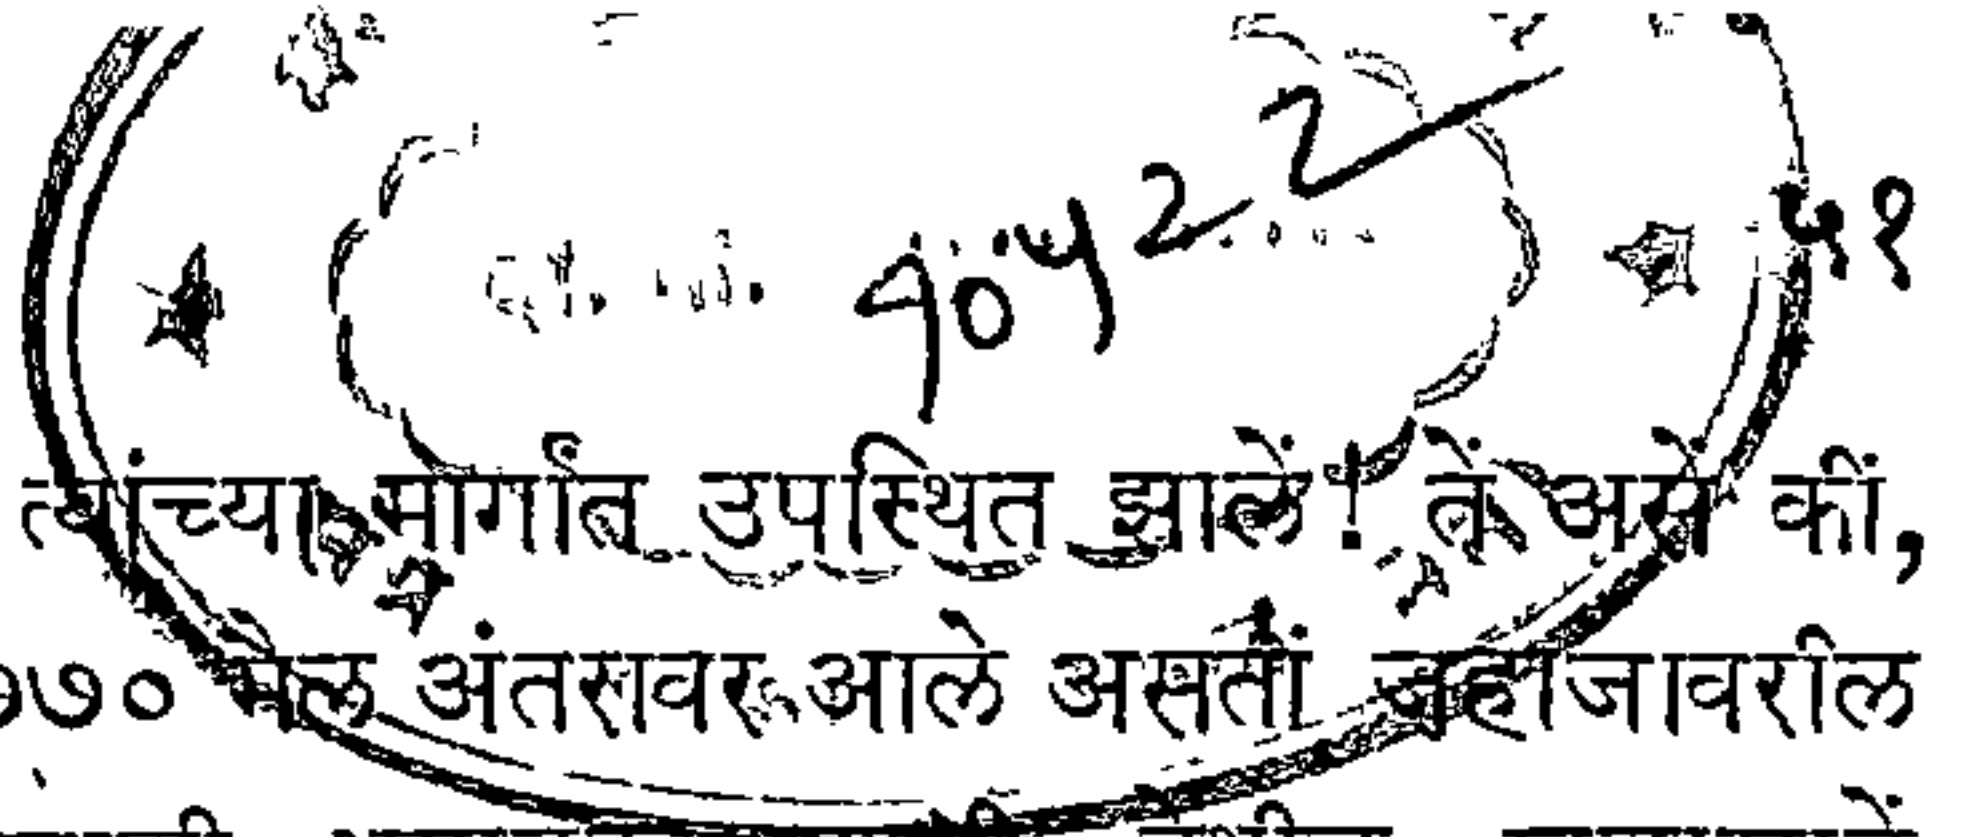 १०५२२
५१
त्यांच्या मार्गात उपस्थित झालें ! तें असें कीं,
७० मैल अंतरावर आले असतां जहाजावरील